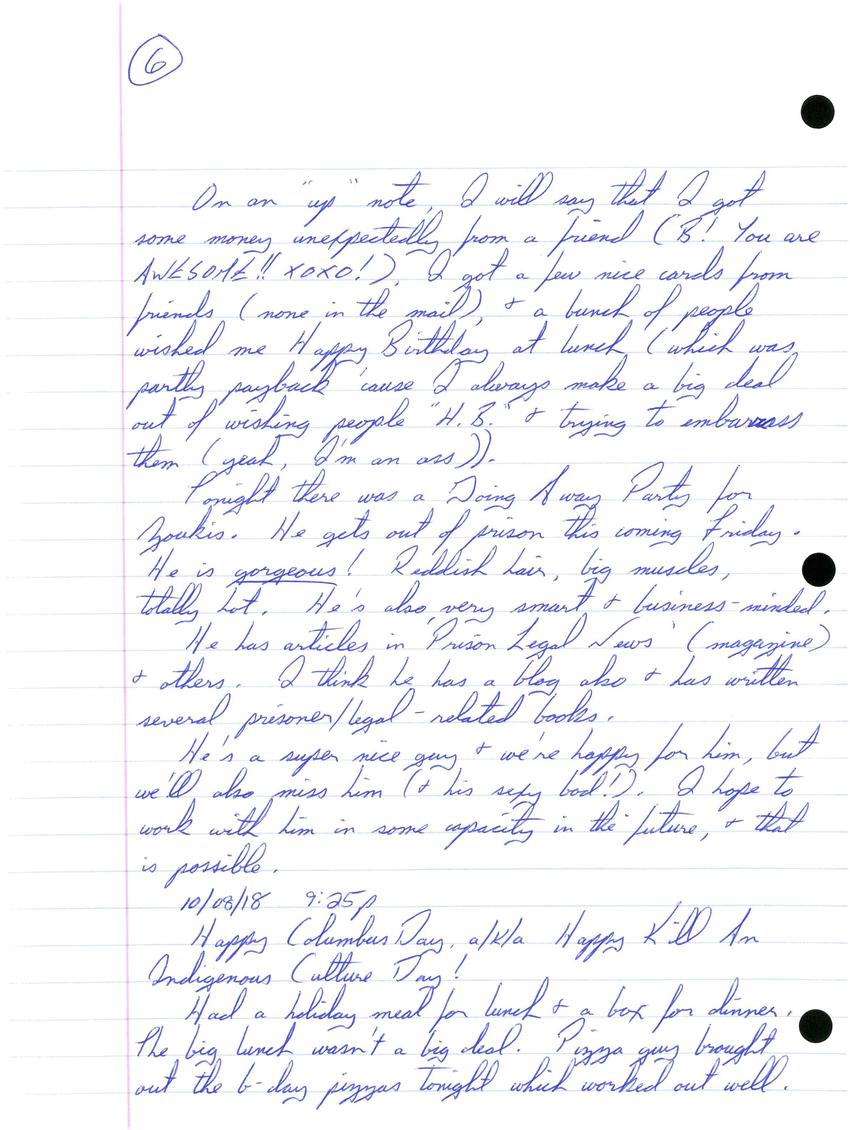 6
On an "up" note, I will say that I got
some money unexpectedly from a friend (B! You are
AWESOME!! XOXO!), I got a few nice cards from
friends (none in the mail), & a bunch of people
wished me Happy Birthday at lunch (which was
partly payback 'cause I always make a big deal
out of wishing people "H.B." & trying to embarrass
them (yeah, I'm an ass)).
Tonight there was a Going Away Party for
Zoukis. He gets out of prison this coming Friday.
He is gorgeous! Reddish hair, big muscles,
totally hot. He's also very smart & business-minded.
He has articles in 'Prison Legal News' (magazine)
& others. I think he has a blog also & has written
several prisoner/legal-related books.
He's a super nice guy & we're happy for him, but
we'll also miss him (& his sexy bod!). I hope to
work with him in some capacity in the future, & that
is possible.
10/08/18 9:25p
Happy Columbus Day, a/k/a Happy Kill An
Indigenous Culture Day!
Had a holiday meal for lunch & a box for dinner.
The big lunch wasn't a big deal. Pizza guy brought
out the b-day pizzas tonight which worked out well.